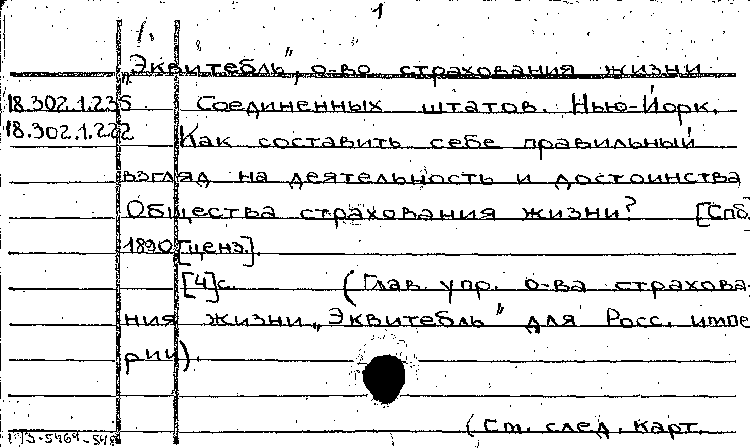 1
„Эквитебль", о-во страхования жизни
18.302.1.235 Соединенных штатов. Нью-Йорк.
18.302.1.222 Как составить себе правильный
взгляд на деятельность и достоинства
Общества страхования жизни? [Спб,
1890, [ценз.].
[4]с. (Глав. упр. о-ва страхова-
ния жизни „Эквитебль" для Росс. импе
рии).
(См. след. карт.